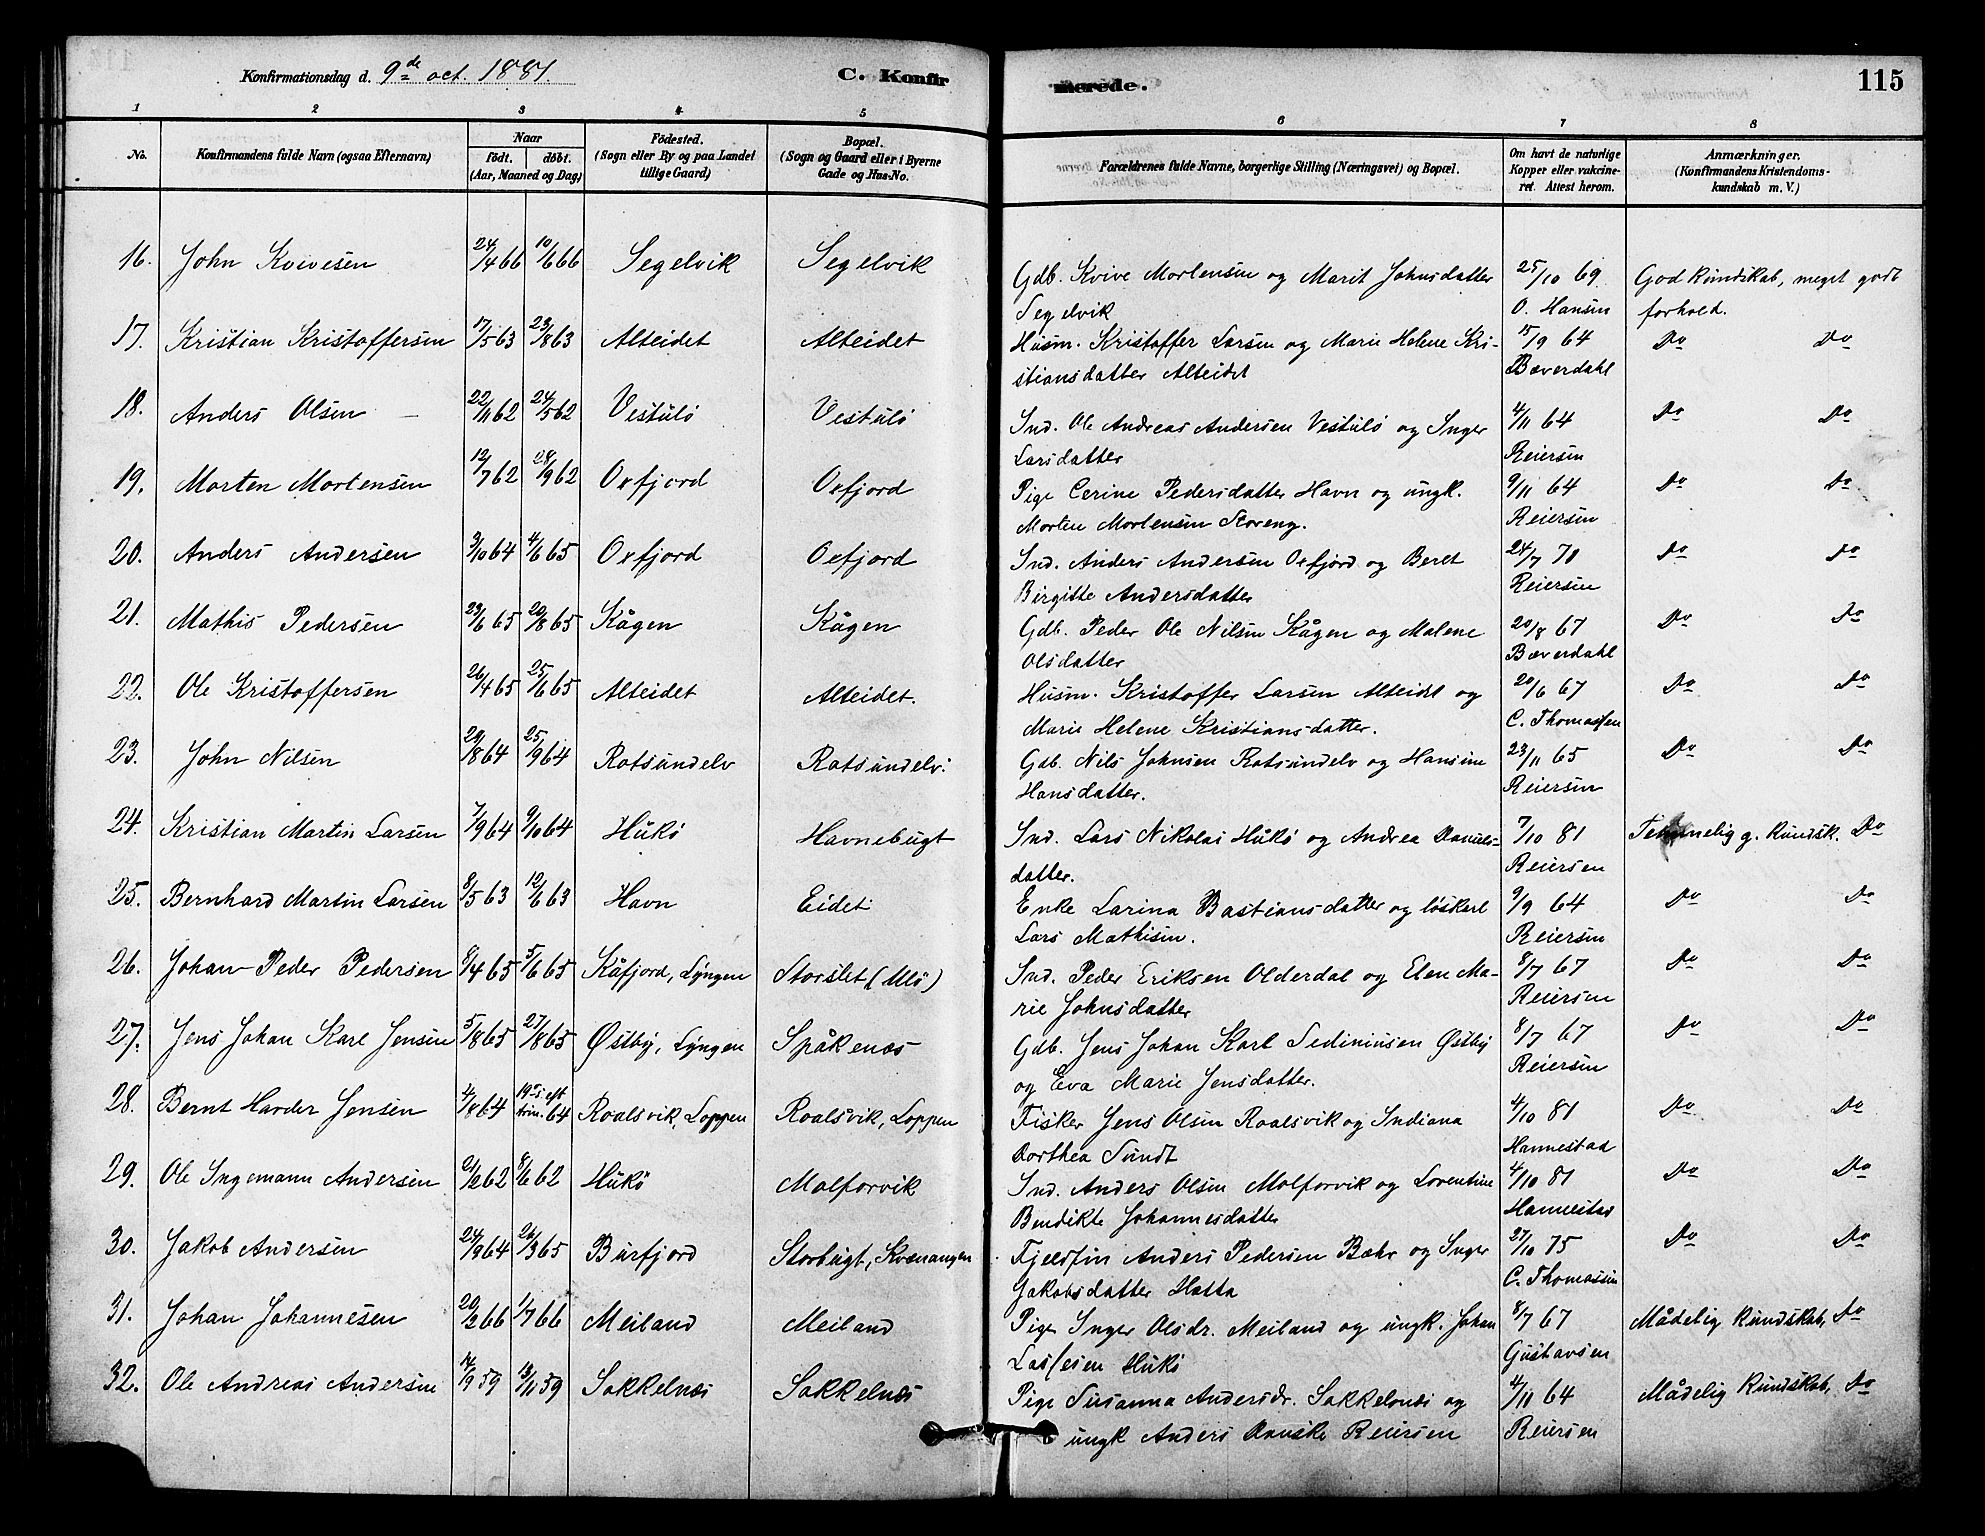 Konfirmationsdag d. 9de oct. 1881. C. Konfirmerede. 115
1 2 3 4 5 6 7 8
No. Konfirmandens fulde Navn (ogsaa Efternavn) Naar födt. döbt. (Aar, Maaned og Dag) Födested. (Sogn eller By og paa Landet tillige Gaard) Bopæl. (Sogn og Gaard eller i Byerne Gade og Hus-No. Forældrenes fulde Navne, borgerlige Stilling (Næringsvei) og Bopæl. Om havt de naturlige Kopper eller vakcineret. Attest herom. Anmærkninger. (Konfirmandens Kristendomskundskab m. V.)
16. John Kvivesen 24/4 66 10/6 66 Segelvik Segelvik Gdb. Kvive Mortensen og Marit Johnsdatter 25/10 69. God kundskab, meget godt
Segelvik O. Hansen forhold.
17. Kristian Kristoffersen 17/5 63 23/8 63 Alteidet Alteidet Husm. Kristoffer Larsen og Marie Helene Kri- 15/9 64 Do Do
stiansdatter Alteidet Bæverdahl
18. Anders Olsen 22/11 62 24/5 62 Vestulö Vestulö Ind. Ole Andreas Andersen Vestulö og Inger 4/11 64 Do Do
Larsdatter Reiersen
19. Morten Mortensen 12/7 62 28/9 62 Oxfjord Oxfjord Pige Cerine Pedersdatter Havn og ungk. 9/11 64 Do Do
Morten Mortensen Storeng. Reiersen
20. Anders Andersen 3/10 64 4/6 65 Oxfjord Oxfjord Ind. Anders Andersen Oxfjord og Beret 24/7 70 Do Do
Birgitte Andersdatter Reiersen
21. Mathis Pedersen 23/6 65 20/8 65 Kågen Kågen Gdb. Peder Ole Nilsen Kågen og Malene 20/8 67 Do Do
Olsdatter Bæverdahl
22. Ole Kristoffersen 26/4 65 25/6 65 Alteidet Alteidet. Husm. Kristoffer Larsen Alteidet og 20/6 67 Do Do
Marie Helene Kristiansdatter. C. Thomassen
23. John Nilsen 29/8 64 25/9 64 Rotsundelv Rotsundelv. Gdb. Nils Johnsen Rotsundelv og Hansine 23/11 65 Do Do
Hansdatter. Reiersen
24. Kristian Martin Larsen 7/9 64 9/10 64 Hukö Havnebugt Ind. Lars Nikolai Hukö og Andrea Daniels- 7/10 81 Temmelig g. kundsk. Do
datter. Reiersen
25. Bernhard Martin Larsen 8/5 63 12/6 63 Havn Eidet Enke Larina Bastiansdatter og löskarl 9/9 64 Do Do
Lars Mathisen. Reiersen
26. Johan Peder Pedersen 8/4 65 5/6 65 Kåfjord, Lyngen Storslet (Ulö) Ind. Peder Eriksen Olderdal og Elen Ma- 8/7 67 Do Do
rie Johnsdatter Reiersen
27. Jens Johan Karl Jensen 5/8 65 27/8 65 Østby, Lyngen Spåkenæs Gdb. Jens Johan Karl Sediniusen Østby 8/7 67 Do Do
og Eva Marie Jensdatter. Reiersen
28. Bernt Harder Jensen 4/8 64 19 s. eft trin. 64 Roalsvik, Loppen Roalsvik, Loppen Fisker Jens Olsen Roalsvik og Indiana 4/10 81 Do Do
Dorthea Sundt Hannestad
29. Ole Ingemann Andersen 21/2 62 8/6 62 Hukö Malforvik Ind. Anders Olsen Molforvik og Lorentine 4/10 81 Do Do
Bendikte Johannesdatter Hannestad
30. Jakob Andersen 24/9 64 26/3 65 Burfjord Storbugt, Kvænangen Fjeldfin Anders Pedersen Bæhr og Inger 27/10 75 Do Do
Jakobsdatter Hatta C. Thomassen
31. Johan Johannesen 20/2 66 1/7 66 Meiland Meiland Pige Inger Olsdr. Meiland og ungk. Johan 8/7 67 Mådelig kundskab, Do
Lassesen Hukö Gustavsen
32. Ole Andreas Andersen 14/9 59 13/11 59 Sokkelnæs Sokkelnæs Pige Susanna Andersdr. Sokkelnæs og 4/11 64 Mådelig kundskab, Do
ungk Anders Danske Reiersen Reiersen